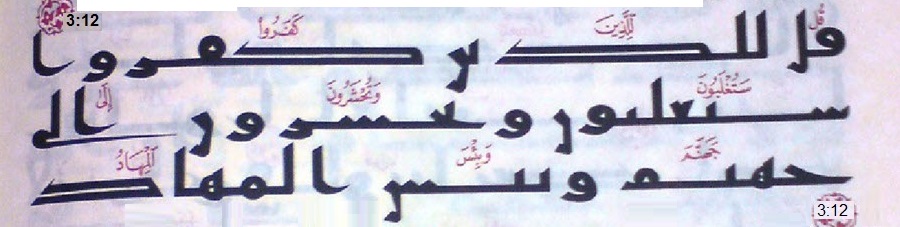 3:12
قُل لِّلَّذِينَ كَفَرُوا
قل للدىں كفروا
سَتُغْلَبُونَ وَتُحْشَرُونَ إِلَىٰ
ستغلبون وتحشرون إلى
جَهَنَّمَ وَبِئْسَ الْمِهَادُ
جهنم وبئس المهاد
3:12